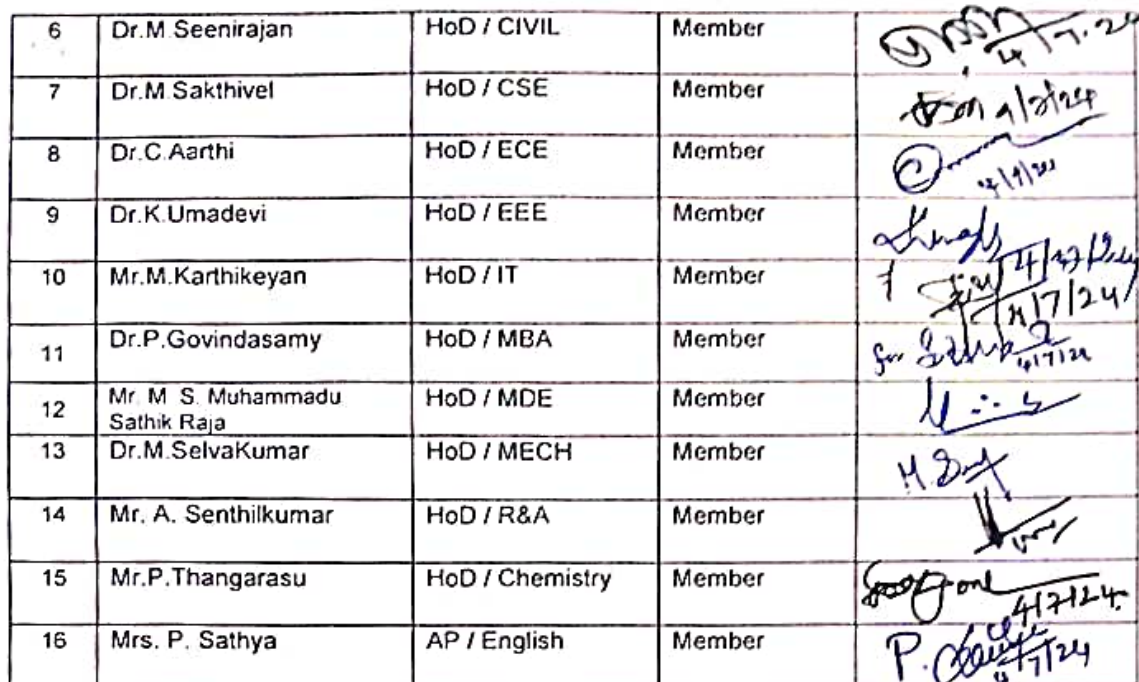 6 Dr.M.Seenirajan HoD / CIVIL Member 4/7.24
7 Dr.M.Sakthivel HoD / CSE Member
8 Dr.C.Aarthi HoD / ECE Member
9 Dr.K.Umadevi HoD / EEE Member
10 Mr.M.Karthikeyan HoD / IT Member 4/7/24
11 Dr.P.Govindasamy HoD / MBA Member 4/7/24
12 Mr. M S. Muhammadu Member
Sathik Raja HoD / MDE
13 Dr.M.SelvaKumar HoD / MECH Member
14 Mr. A. Senthilkumar HoD / R&A Member
15 Mr.P.Thangarasu HoD / Chemistry Member 4/7/24.
16 Mrs. P. Sathya AP / English Member P. 4/7/24